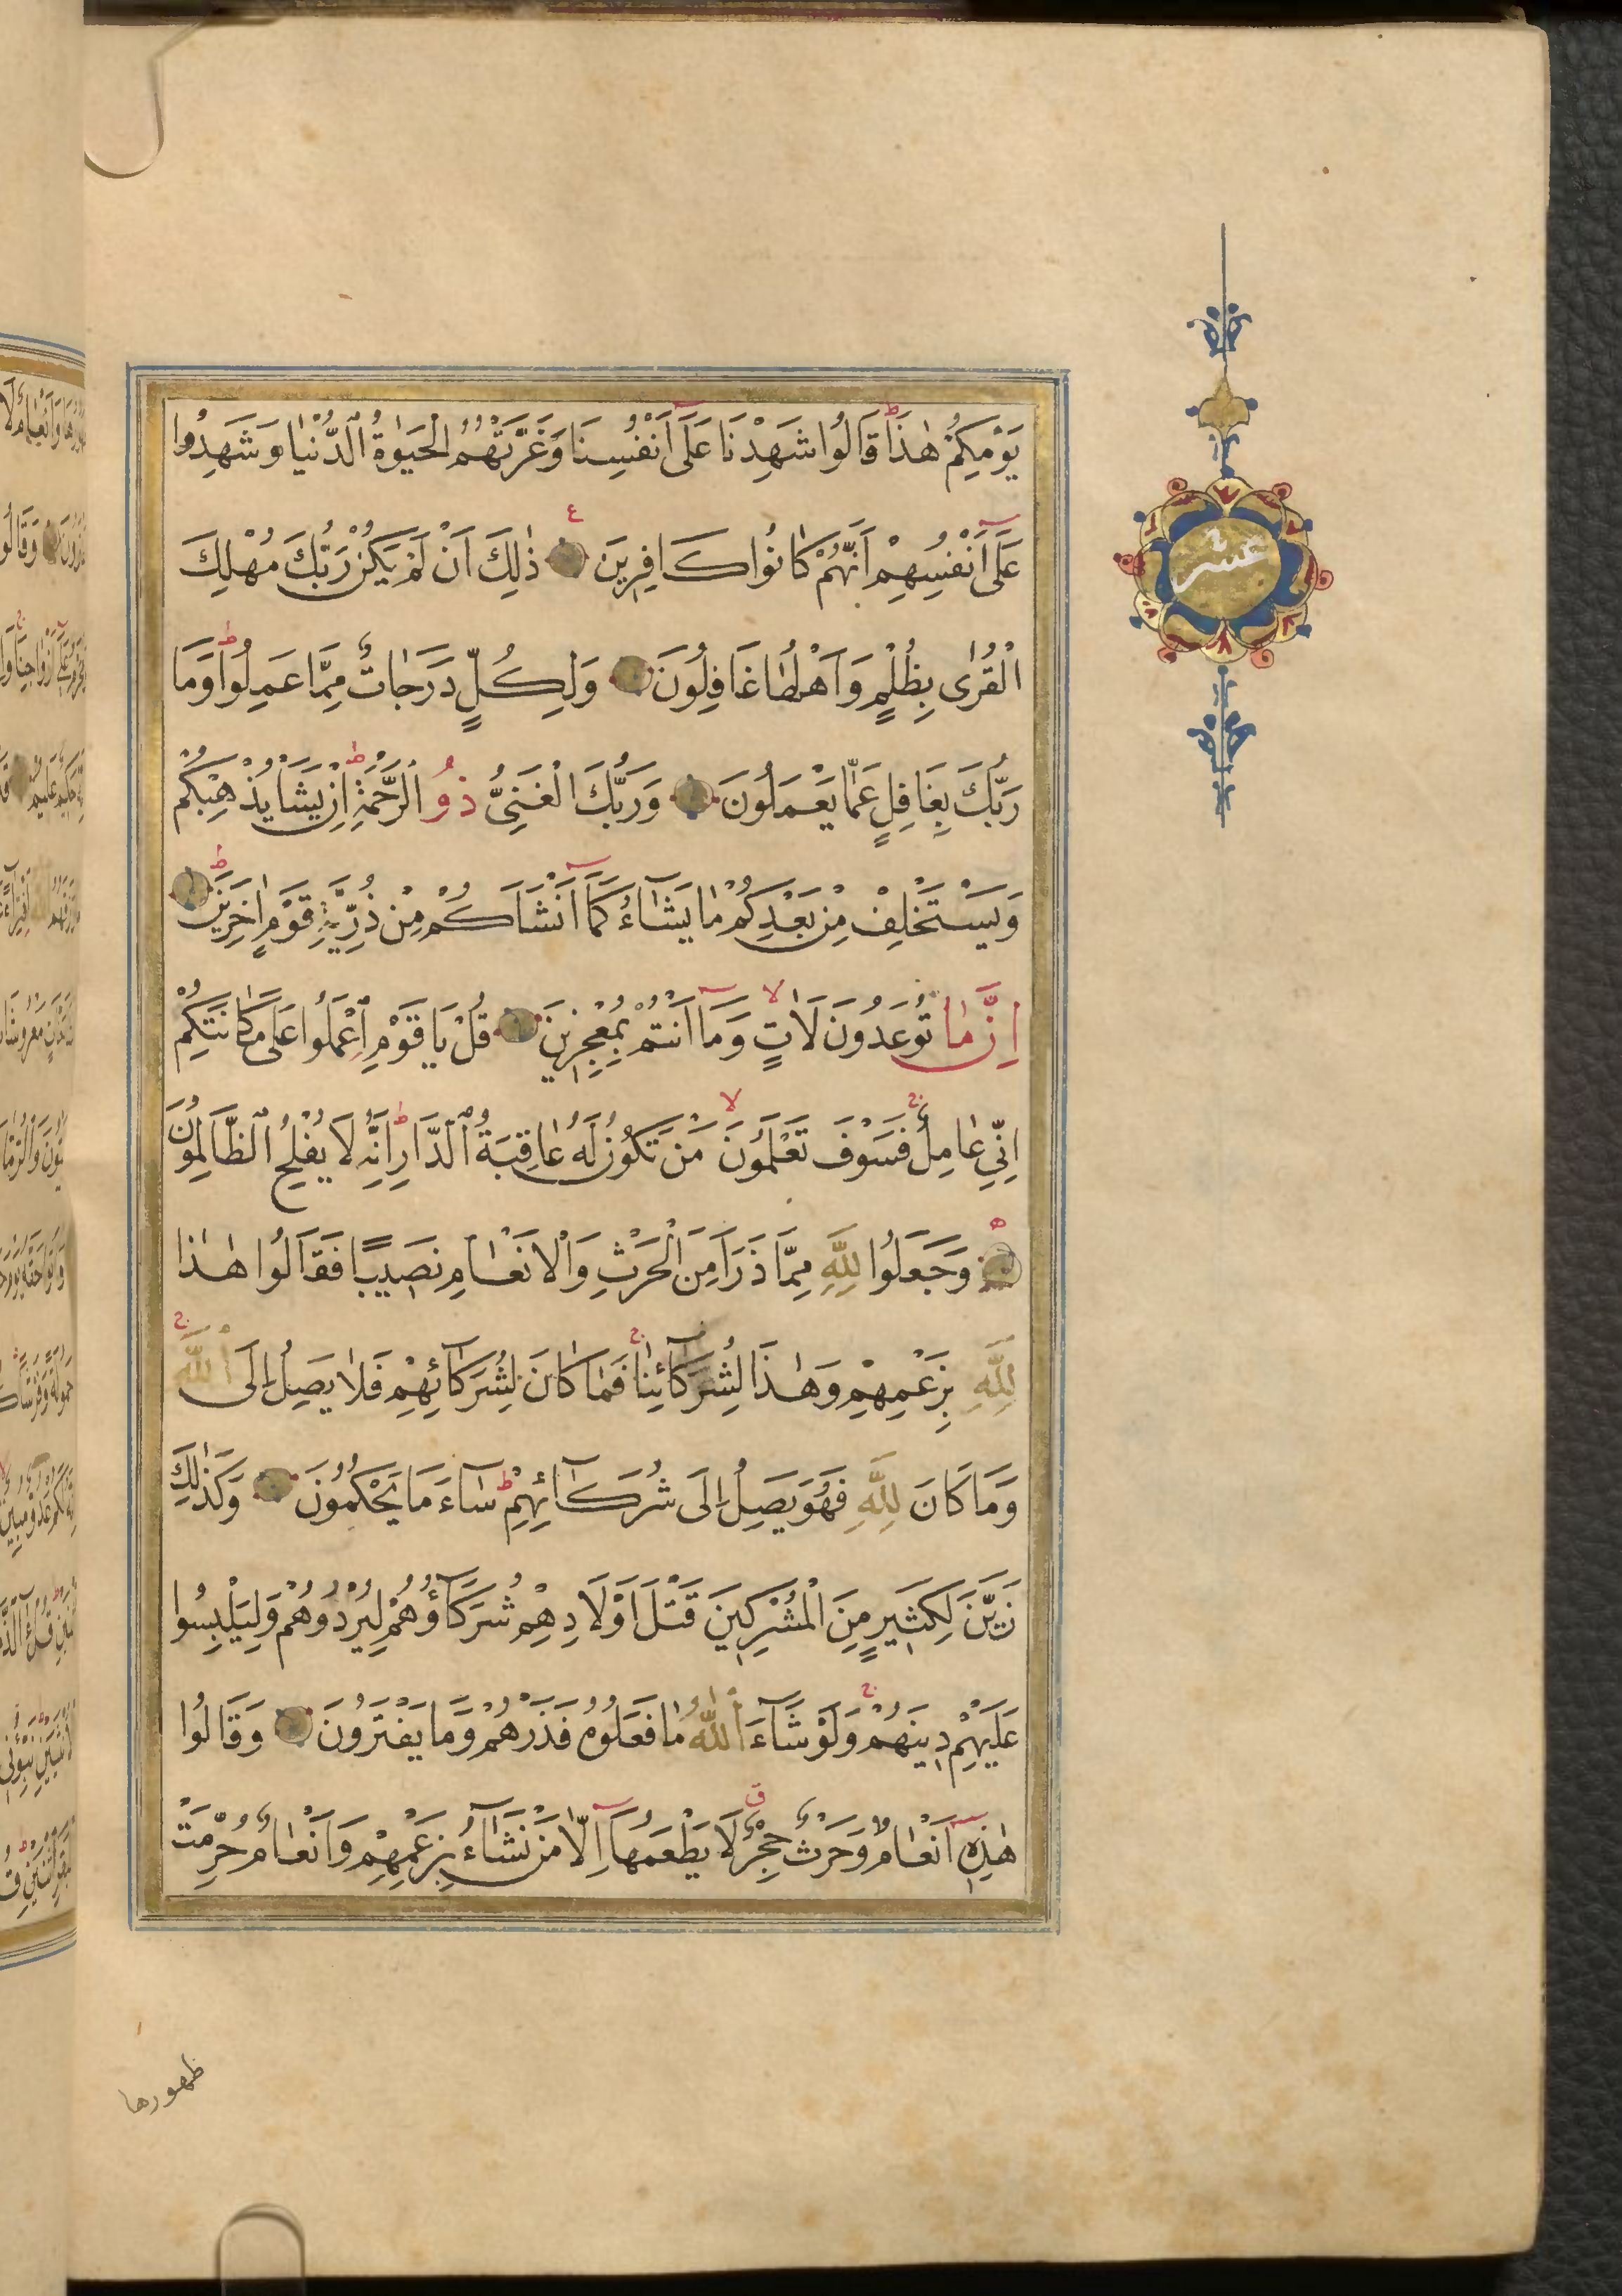 يَوْمِكُمْ هٰذَا قَالُوا شَهِدْنَا عَلَى اَنْفُسِنَا وَغَرَّتْهُمُ الْحَيٰوةُ الدُّنْيَا وَشَهِدُوا
عَلَى اَنْفُسِهِمْ اَنَّهُمْ كَانُوا كَافِرِينَ ذٰلِكَ اَنْ لَمْ يَكُنْ رَبُّكَ مُهْلِكَ
الْقُرٰى بِظُلْمٍ وَاَهْلُهَا غَافِلُونَ وَلِكُلٍّ دَرَجَاتٌ مِمَّا عَمِلُوا وَمَا
رَبُّكَ بِغَافِلٍ عَمَّا يَعْمَلُونَ وَرَبُّكَ الْغَنِيُّ ذُو الرَّحْمَةِ اِنْ يَشَأْ يُذْهِبْكُمْ
وَيَسْتَخْلِفْ مِنْ بَعْدِكُمْ مَا يَشَاءُ كَمَا اَنْشَاَكُمْ مِنْ ذُرِّيَّةِ قَوْمٍ اٰخَرِينَ
اِنَّ مَا تُوعَدُونَ لَاٰتٍ وَمَا اَنْتُمْ بِمُعْجِزِينَ قُلْ يَا قَوْمِ اعْمَلُوا عَلٰى مَكَانَتِكُمْ
اِنِّي عَامِلٌ فَسَوْفَ تَعْلَمُونَ مَنْ تَكُونُ لَهُ عَاقِبَةُ الدَّارِ اِنَّهُ لَا يُفْلِحُ الظَّالِمُونَ
وَجَعَلُوا لِلّٰهِ مِمَّا ذَرَاَ مِنَ الْحَرْثِ وَالْاَنْعَامِ نَصِيبًا فَقَالُوا هٰذَا
لِلّٰهِ بِزَعْمِهِمْ وَهٰذَا لِشُرَكَائِنَا فَمَا كَانَ لِشُرَكَائِهِمْ فَلَا يَصِلُ اِلَى اللّٰهِ
وَمَا كَانَ لِلّٰهِ فَهُوَ يَصِلُ اِلٰى شُرَكَائِهِمْ سَاءَ مَا يَحْكُمُونَ وَكَذٰلِكَ
زَيَّنَ لِكَثِيرٍ مِنَ الْمُشْرِكِينَ قَتْلَ اَوْلَادِهِمْ شُرَكَاؤُهُمْ لِيُرْدُوهُمْ وَلِيَلْبِسُوا
عَلَيْهِمْ دِينَهُمْ وَلَوْ شَاءَ اللّٰهُ مَا فَعَلُوهُ فَذَرْهُمْ وَمَا يَفْتَرُونَ وَقَالُوا
هٰذِهِ اَنْعَامٌ وَحَرْثٌ حِجْرٌ لَا يَطْعَمُهَا اِلَّا مَنْ نَشَاءُ بِزَعْمِهِمْ وَاَنْعَامٌ حُرِّمَتْ
ظهورها
عشر